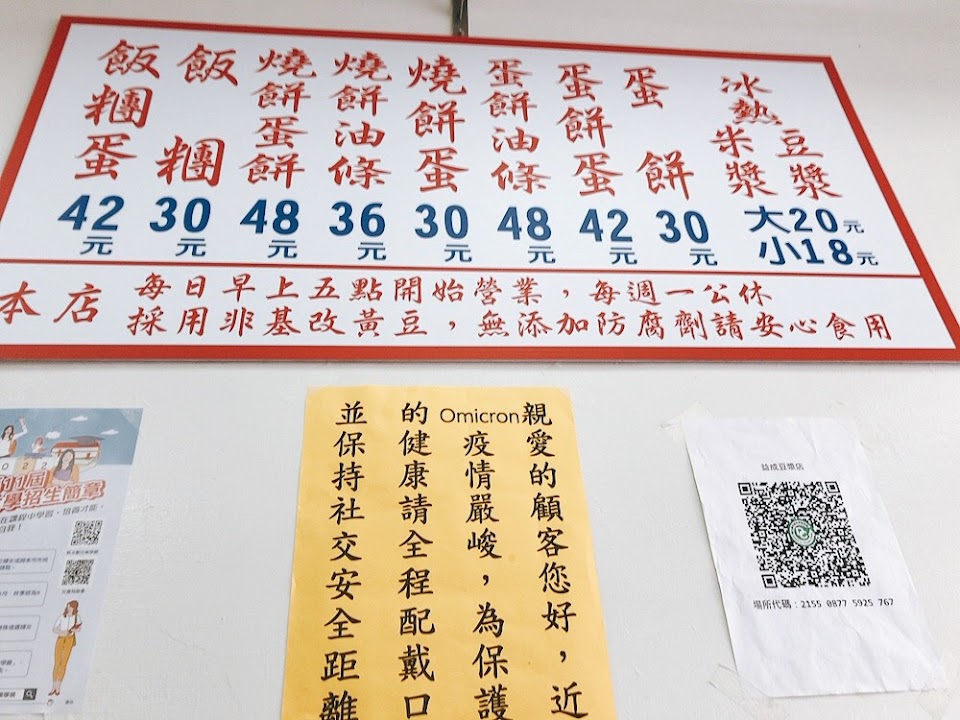 冰熱
豆漿
米漿
大20元
小18元
蛋餅
30元
蛋餅蛋
42元
蛋餅油條
48元
燒餅蛋
30元
燒餅油條
36元
燒餅蛋餅
48元
飯糰
30元
飯糰蛋
42元
本店
每日早上五點開始營業，每週一公休
採用非基改黃豆，無添加防腐劑請安心食用
親愛的顧客您好，近
Omicron疫情嚴峻，為保護
的健康請全程配戴口
並保持社交安全距離
益成豆漿店
場所代碼：2155 0877 5925 767
2022
學招生簡章